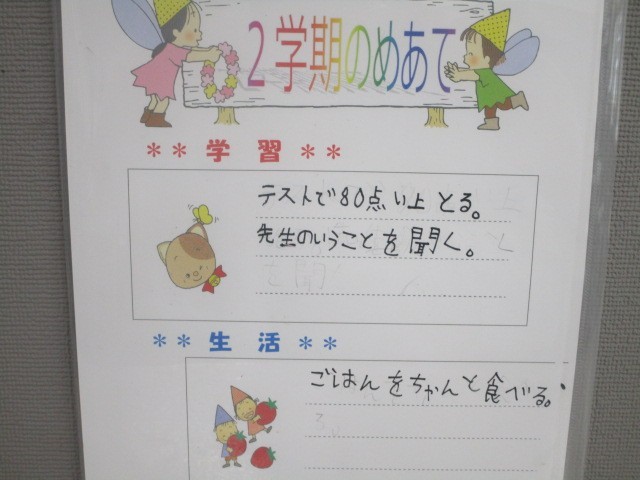 2学期のめあて
** 学習 **
テストで80点い上とる。
先生のいうことを聞く。
** 生活 **
ごはんをちゃんと食べる。